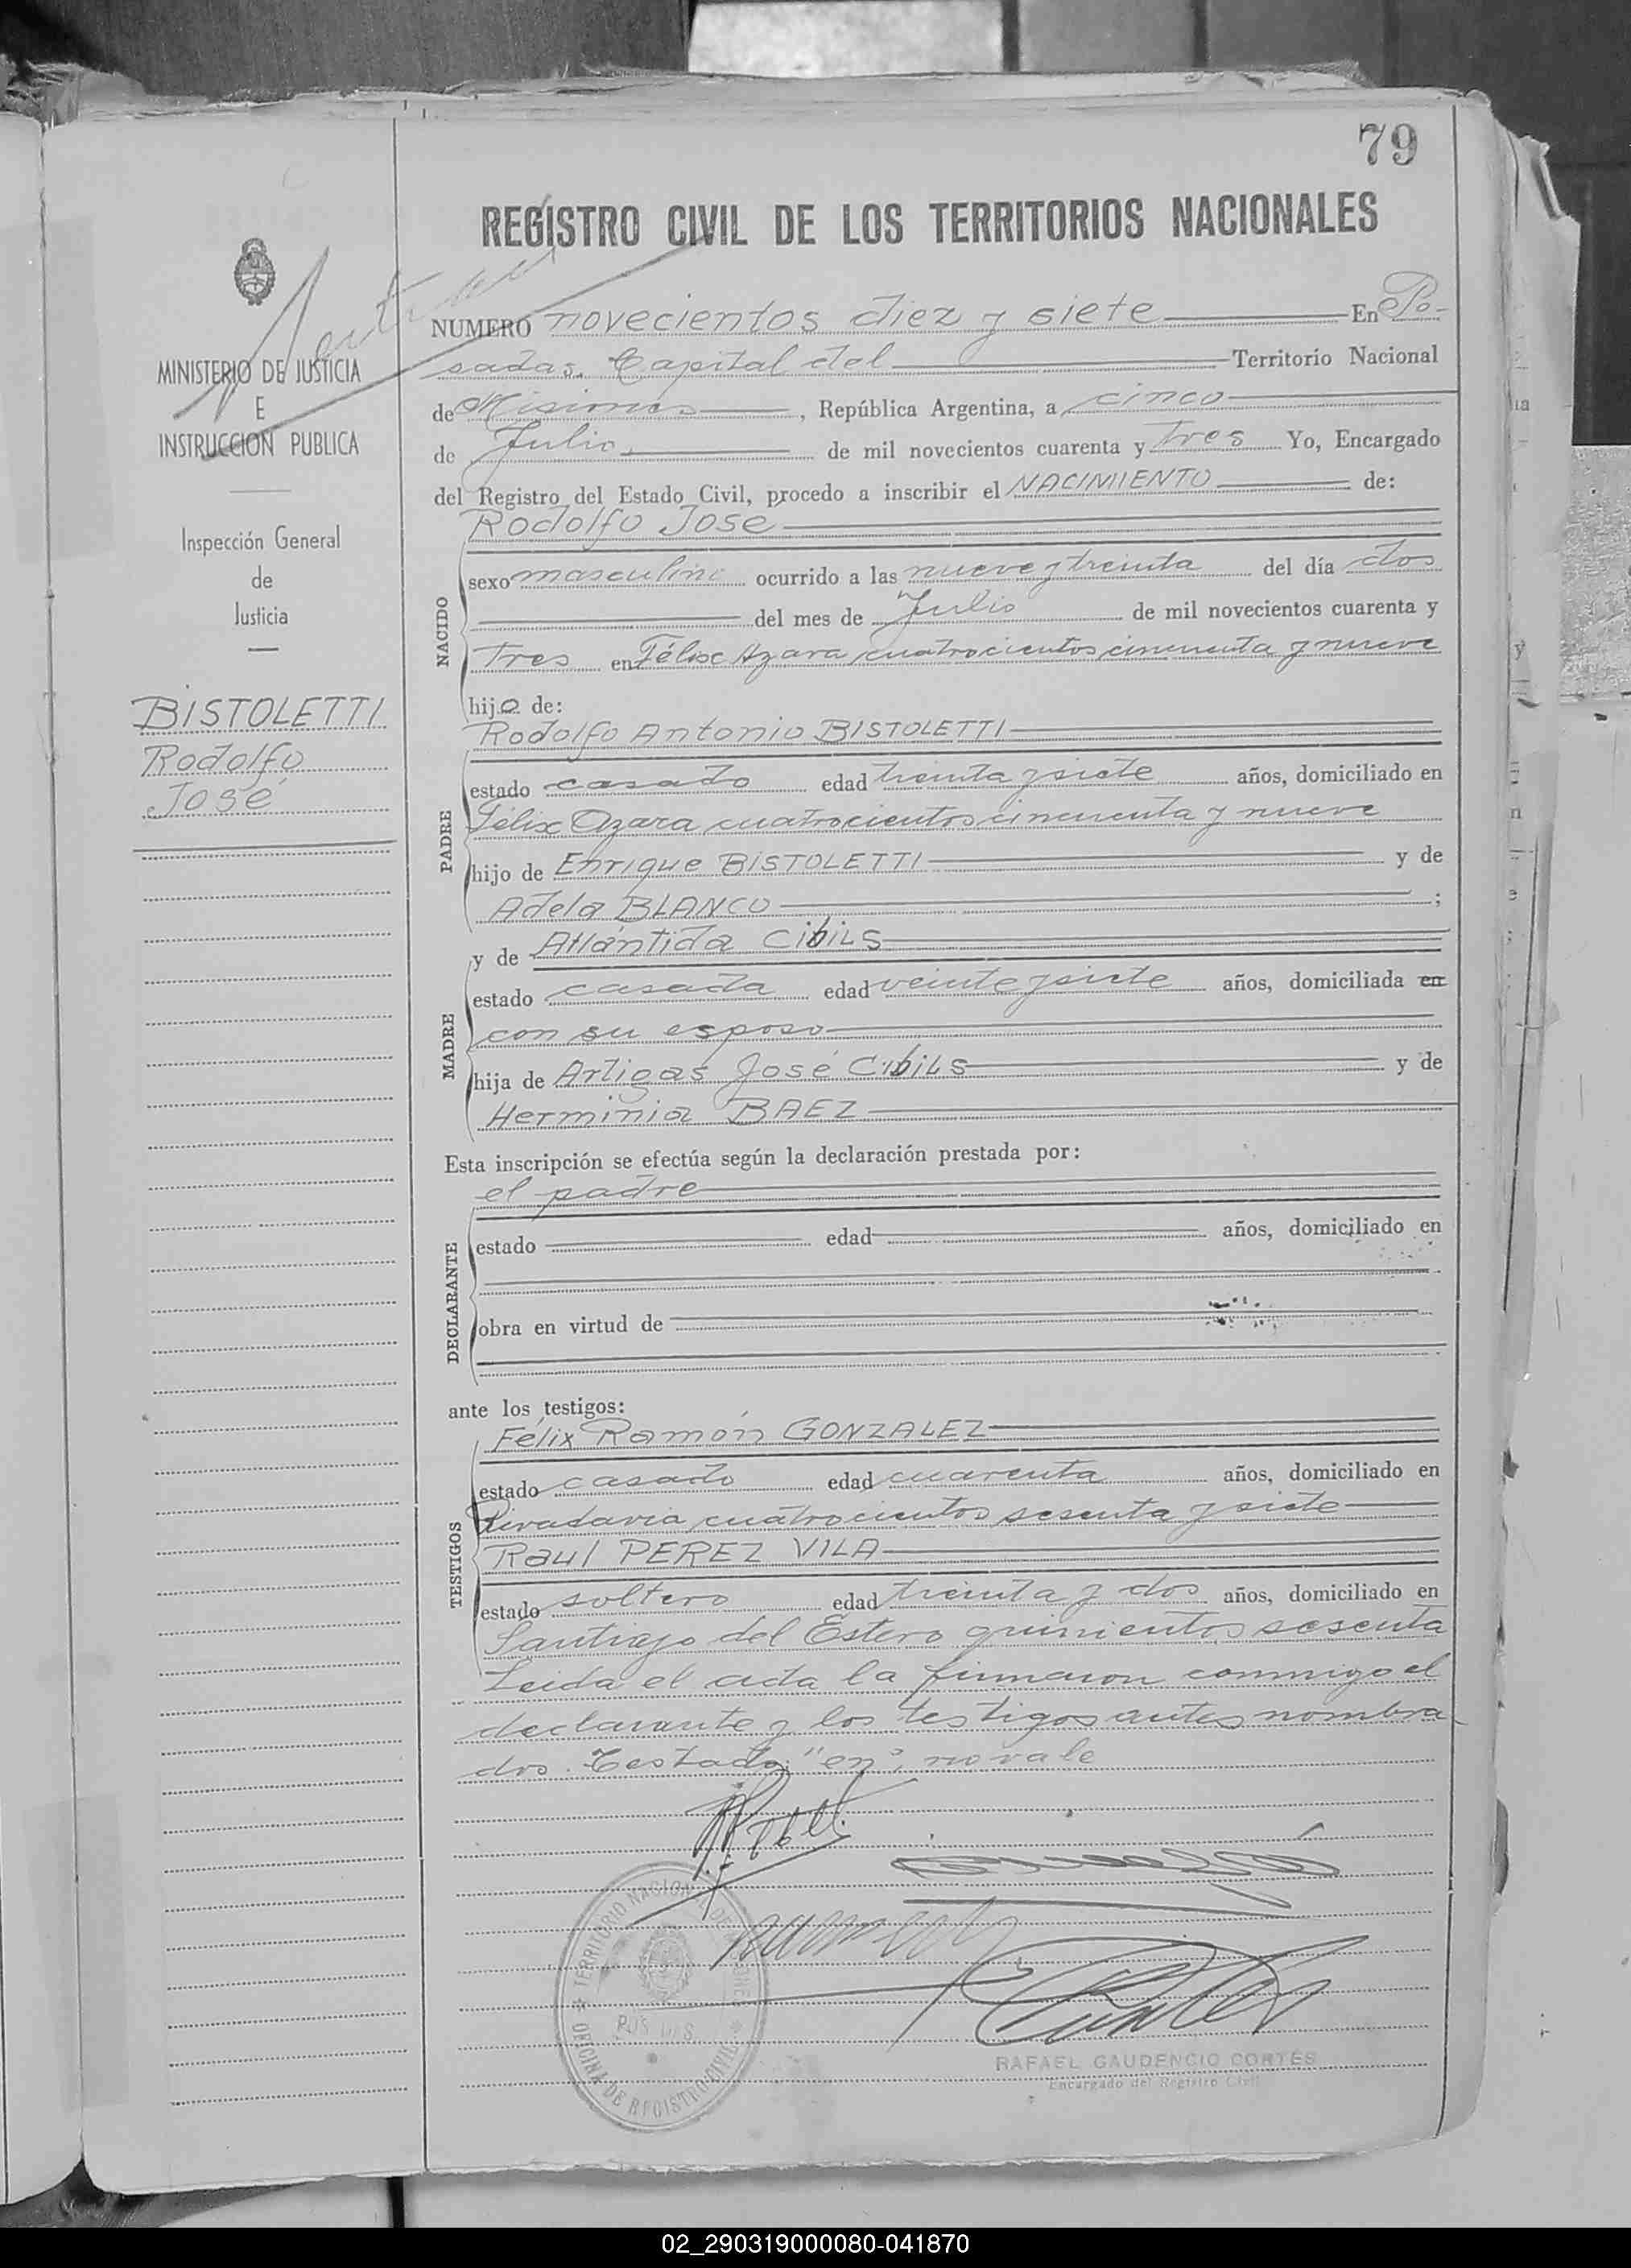 79
REGISTRO CIVIL DE LOS TERRITORIOS NACIONALES
MINISTERIO DE JUSTICIA
E
INSTRUCCION PUBLICA
Inspección General
de
Justicia
BISTOLETTI
Rodolfo
José
NUMERO novecientos diez y siete En Po-
sadas. Capital del Territorio Nacional
de Misiones, República Argentina, a cinco
de Julio, de mil novecientos cuarenta y tres Yo, Encargado
del Registro del Estado Civil, procedo a inscribir el NACIMIENTO de:
NACIDO
Rodolfo José
sexo masculino ocurrido a las nueve y treinta del día dos
del mes de Julio de mil novecientos cuarenta y
tres en Félix Azara cuatrocientos cincuenta y nueve
hijo de:
PADRE
Rodolfo Antonio BISTOLETTI
estado casado edad treinta y siete años, domiciliado en
Félix Azara cuatrocientos cincuenta y nueve
hijo de Enrique BISTOLETTI y de
Adela BLANCO ;
MADRE
y de Atlántida CibiLS
estado casada edad veinte y siete años, domiciliada en
con su esposo
hija de Artigas José CibiLS y de
Herminia BAEZ
Esta inscripción se efectúa según la declaración prestada por:
DECLARANTE
el padre
estado edad años, domiciliado en
obra en virtud de
ante los testigos:
TESTIGOS
Félix Ramón GONZALEZ
estado casado edad cuarenta años, domiciliado en
Rivadavia cuatrocientos sesenta y siete
Raul PEREZ VILA
estado soltero edad treinta y dos años, domiciliado en
Santiago del Estero quinientos sesenta
Leida el acta la firmaron conmigo el
declarante y los testigos antes nombra
dos. Testado: "en", no vale
TERRITORIO NACIONAL DE MISIONES
POSADAS
OFICINA DE REGISTRO CIVIL
RAFAEL GAUDENCIO CORTES
Encargado del Registro Civil
02_290319000080-041870